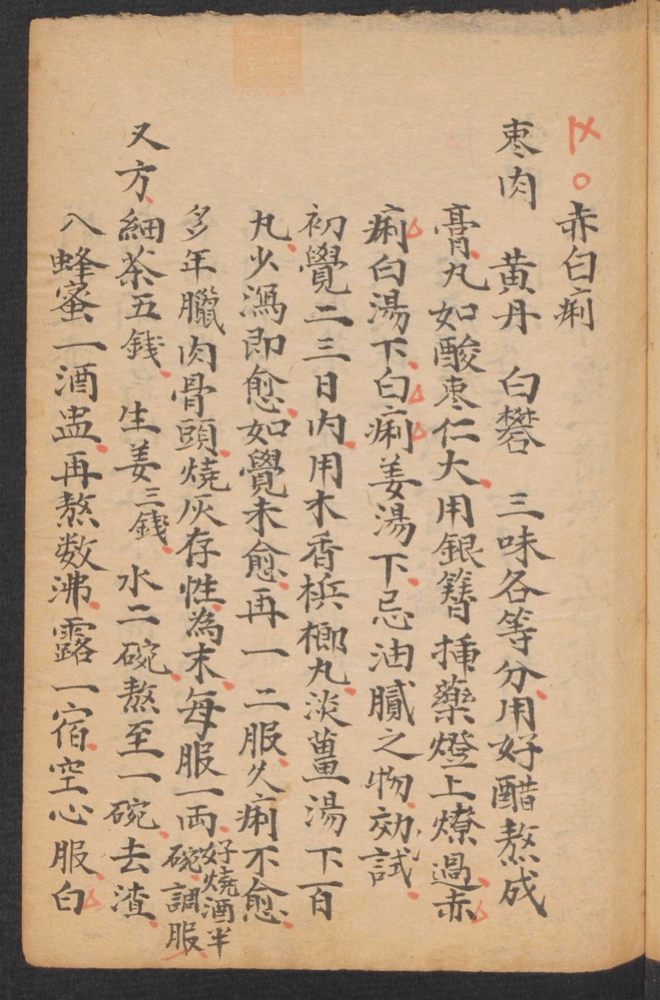 ○赤白痢
枣肉 黄丹 白礬 三味各等分用好醋熬成
膏丸如酸枣仁大用銀簪揷藥燈上燎過赤
痢白湯下白痢姜湯下忌油膩之物効試
初覺二三日内用木香梹榔丸淡薑湯下百
丸少瀉即愈如覺未愈再一二服久痢不愈
多年臘肉骨頭燒灰存性為末每服一両好燒酒半碗調服
又方細茶五錢 生姜三錢 水二碗熬至一碗去渣
入蜂蜜一酒盅再熬数沸露一宿空心服白